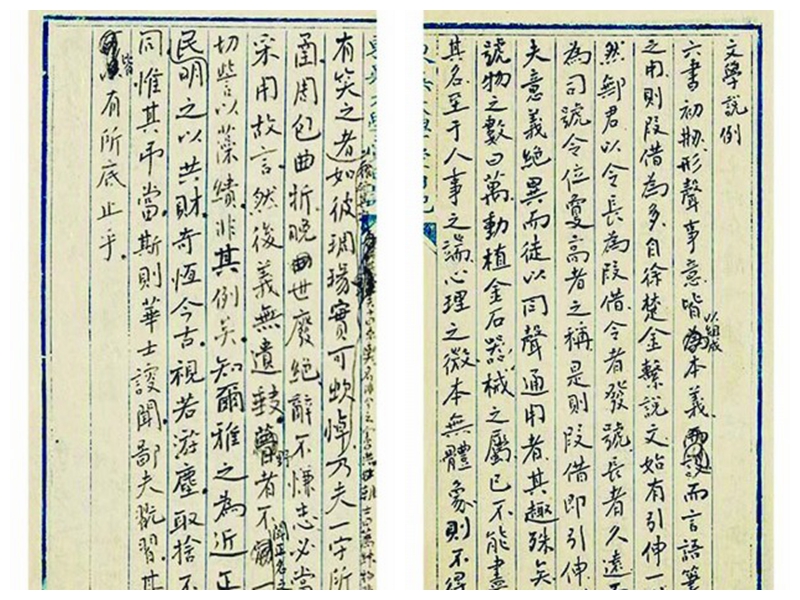 文學說例
六書初剏形聲事意皆以組成本義而言語筆
之用則叚借為多自徐楚金繫說文始有引伸一
然鄦君以令長為叚借令者發號長者久遠而
為司號令位夐高者之稱是則叚借即引伸
夫意義絕異而徒以同聲通用者其趣殊矣
號物之數曰萬動植金石器械之屬已不能盡
其名至于人事之端心理之微本無體象則不得
有笑之者如彼珚瑒實可蚑悼乃夫一字所
函周包曲折晚世廢絕辭不慊志必當
采用故言然後義無遺野者不聞正名之一
切訾以藻繢非其例矣知爾雅之為近正
民明之以共財奇恆今古視若游塵取捨不
同惟其弔當斯則華士謏聞鄙夫翫習其
皆有所底止乎